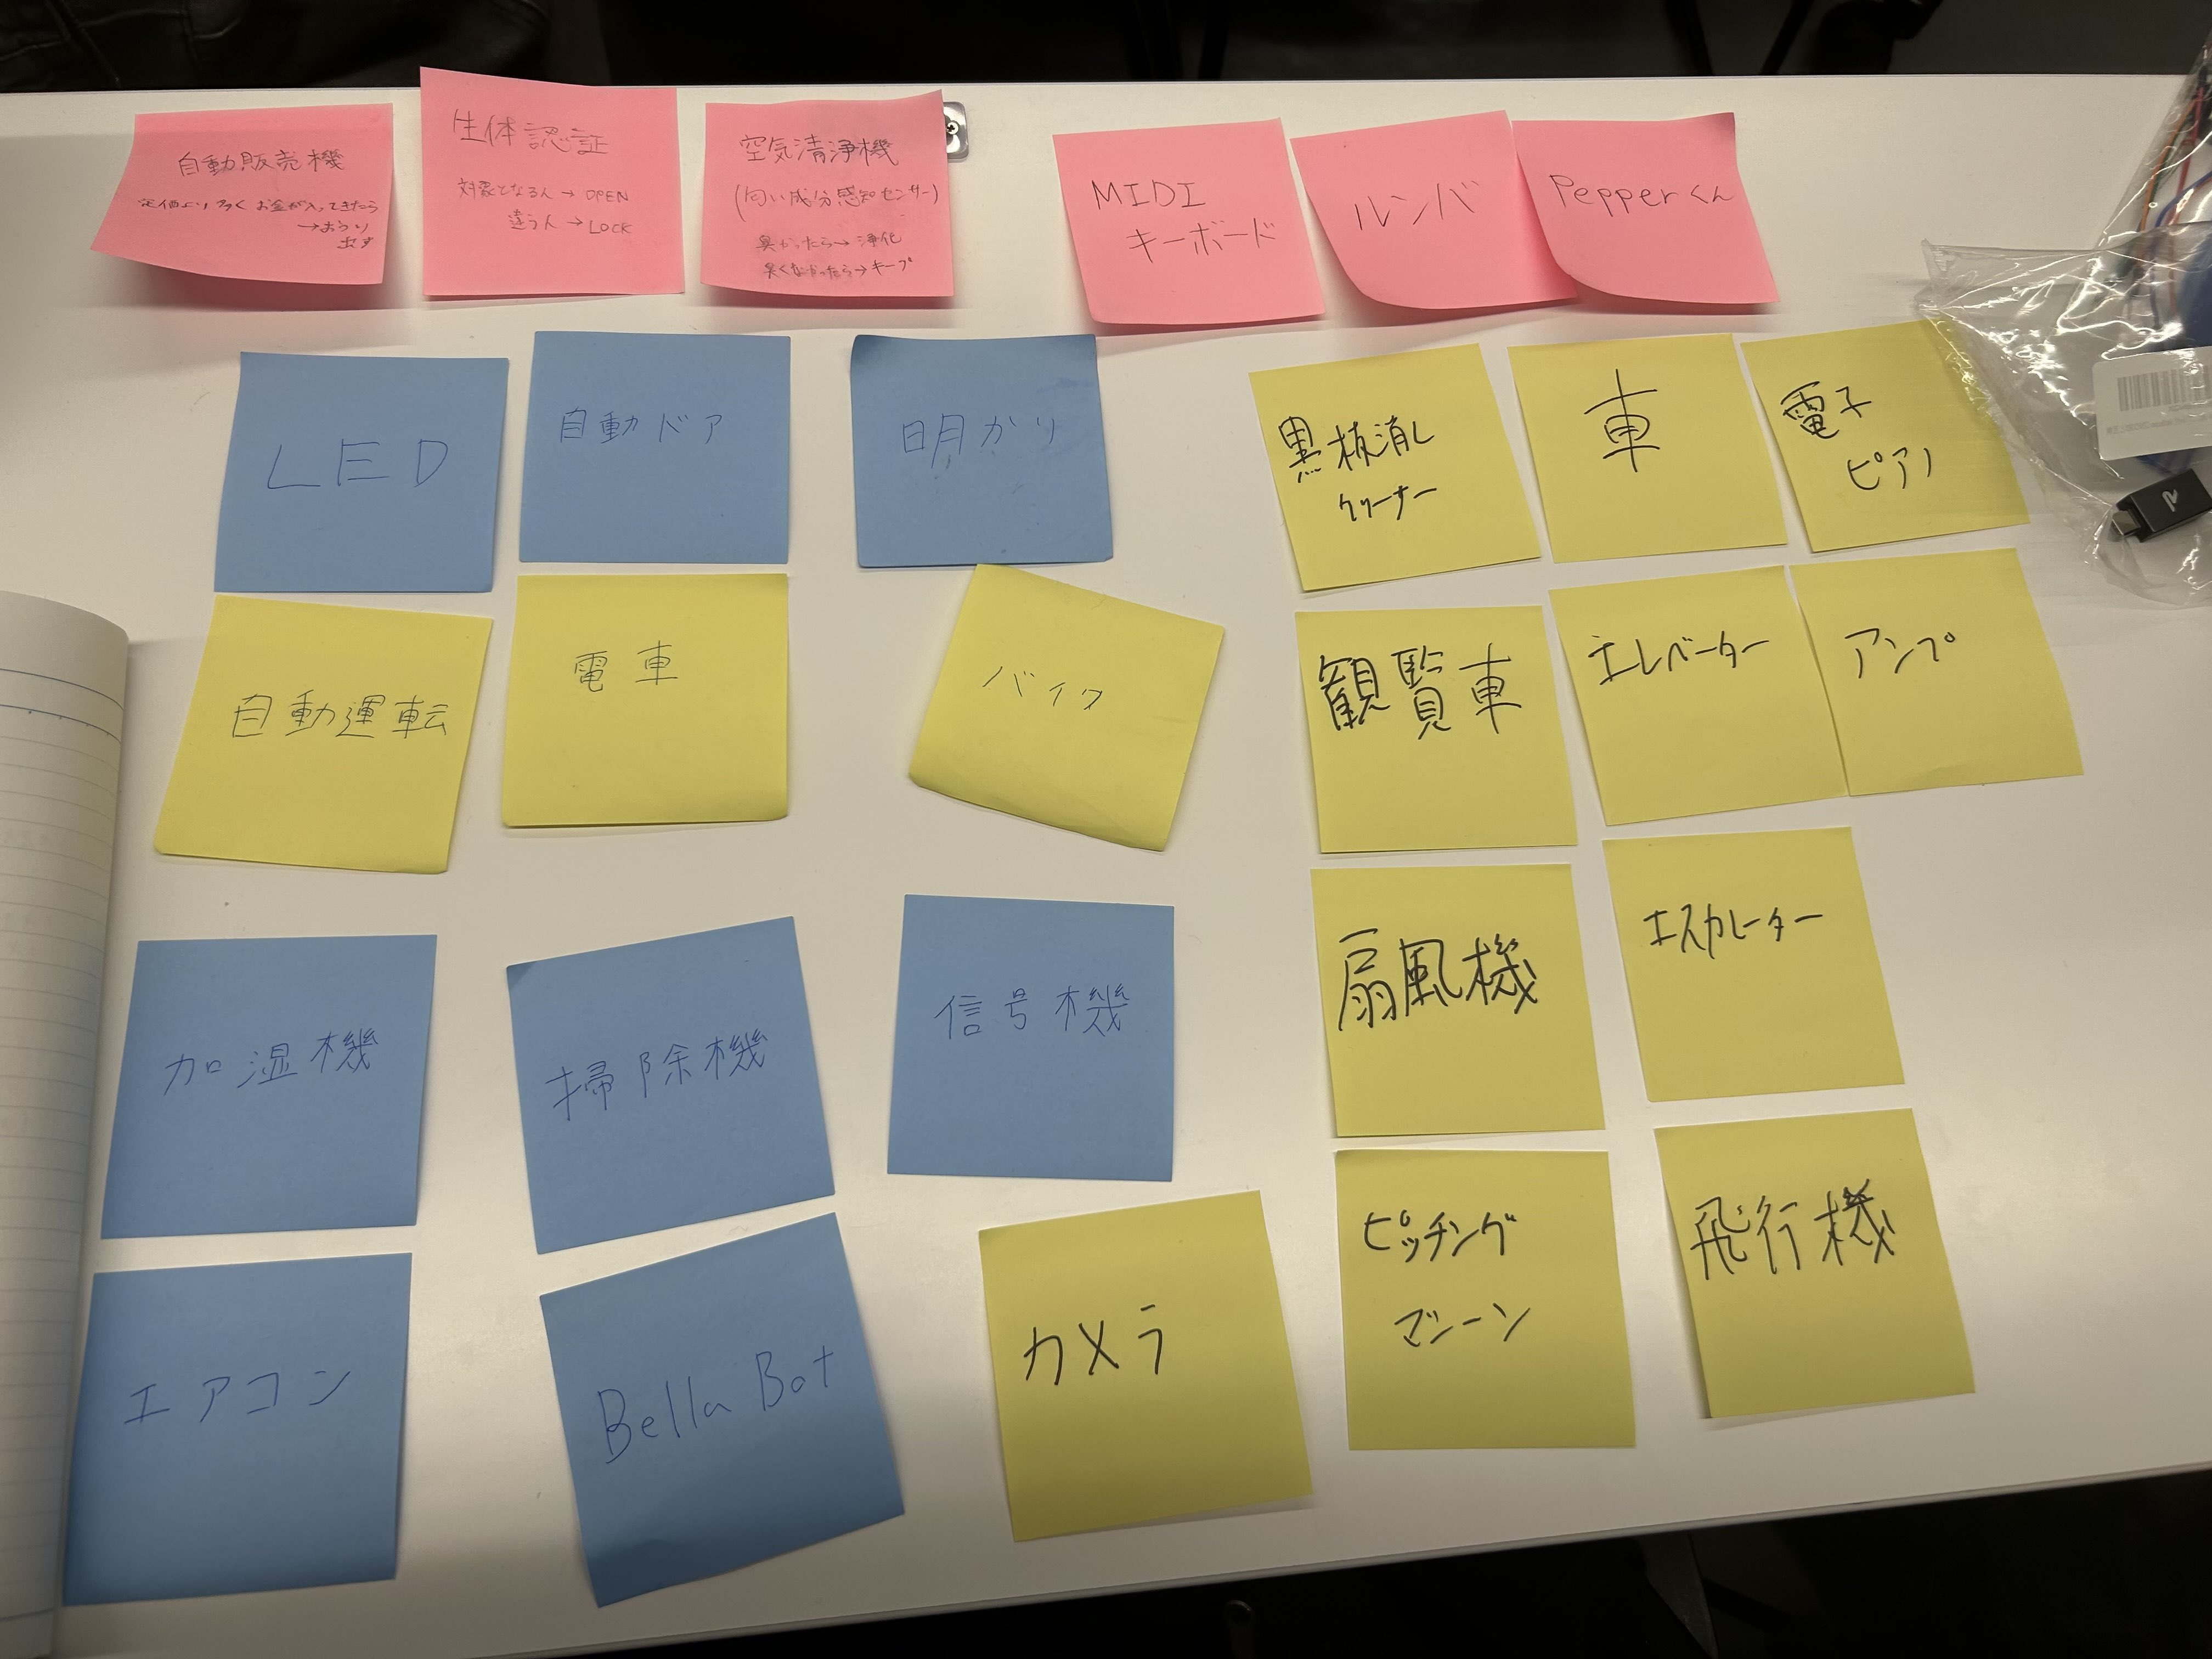 自動販売機
定価より多くお金が入ってきたら
→おつり
出す
生体認証
対象となる人→OPEN
違う人→LOCK
空気清浄機
(匂い成分感知センサー)
臭かったら→浄化
臭くなかったら→キープ
MIDI
キーボード
ルンバ
Pepperくん
LED
自動ドア
明かり
黒板消し
クリーナー
車
電子
ピアノ
自動運転
電車
バイク
観覧車
エレベーター
アンプ
加湿機
掃除機
信号機
扇風機
エスカレーター
エアコン
Bella Bot
カメラ
ピッチング
マシーン
飛行機